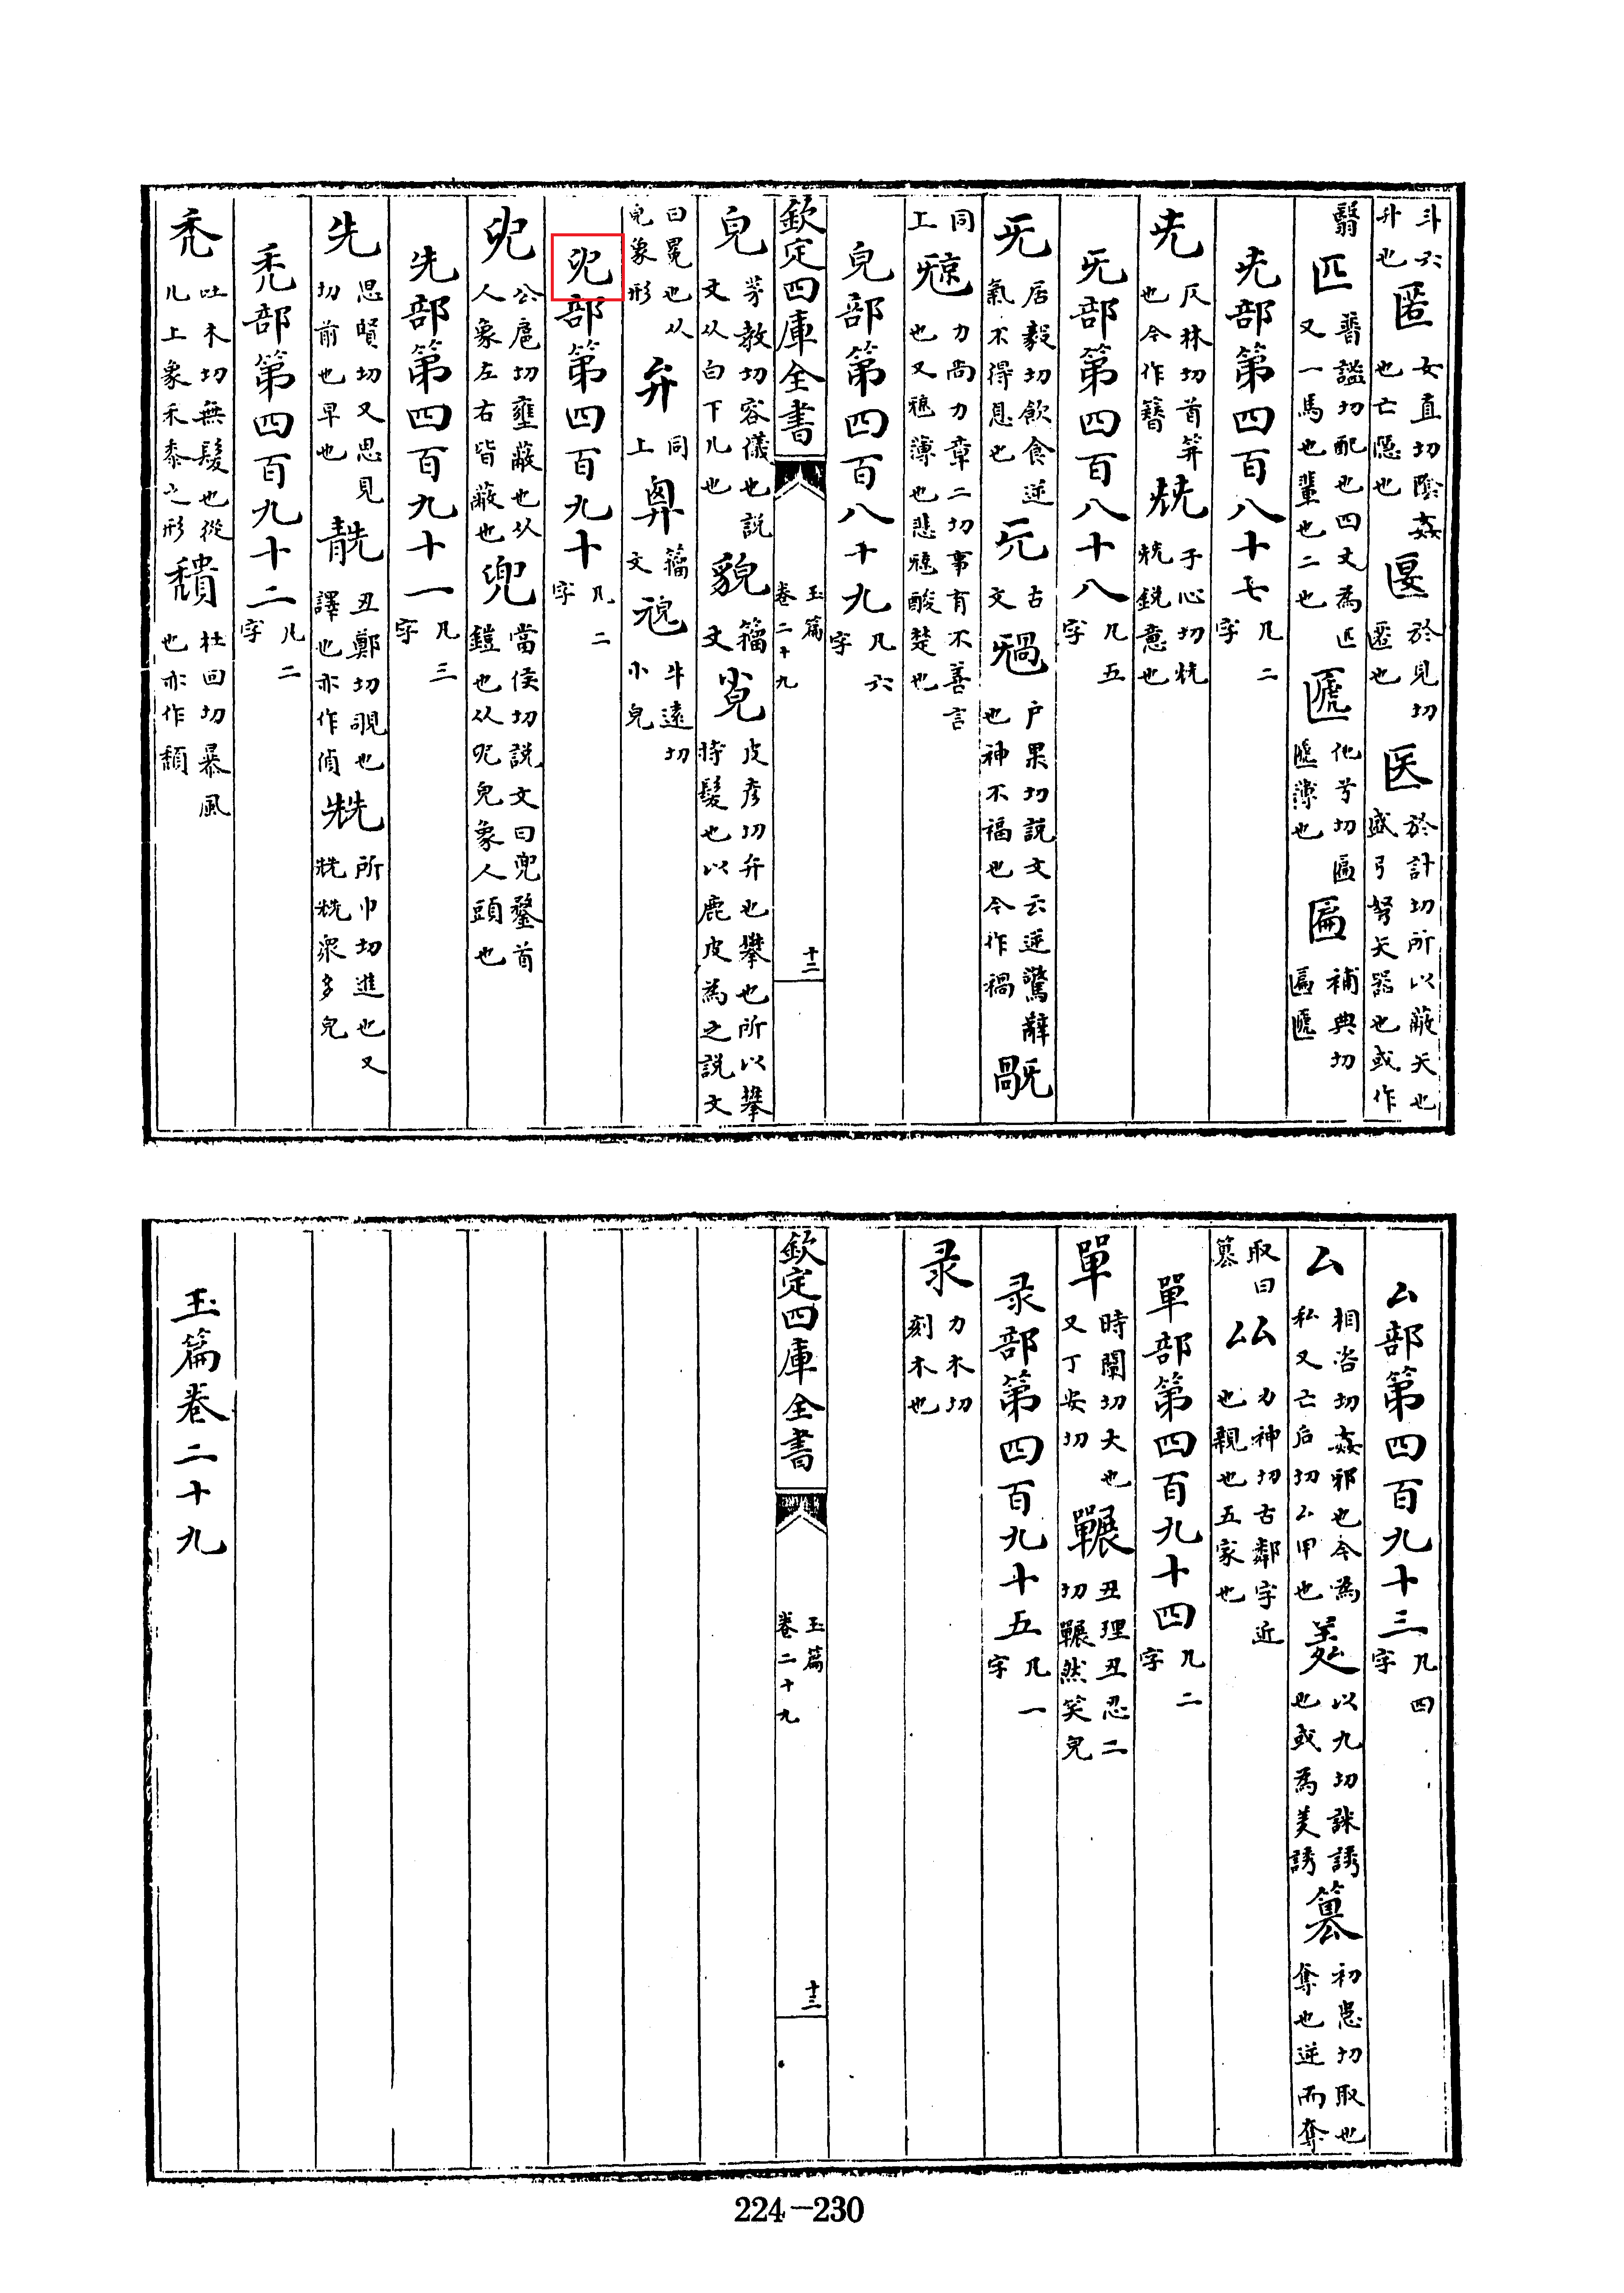 斗六
升也
匿
女直切陰姦
也亡隱也
匽
於見切
匿也
医
於計切所以蔽矢也
盛弓弩矢器也或作
翳
匹
普謐切配也四丈為匹
又一馬也輩也二也
匾
補典切
匾㔸
兂部第四百八十七
凡二
字
兂
仄林切首筓
也今作簪
兓
子心切兓
兓銳意也
旡部第四百八十八
凡五
字
旡
居毅切飲食逆
氣不得息也
古
文
户果切説文云逆驚辭
也神不福也今作禍
同
上
力尚力章二切事有不善言
也又㹁薄也悲㹁酸楚也
皃部第四百八十九
凡六
字
欽定四庫全書
玉篇
卷二十九
十二
皃
孝教切容儀也説
文从白下儿也
貌
籀
文
皮彦切弁也攀也所以攀
持髮也以鹿皮為之説文
曰冕也从
皃象形
弁
同
上
籀
文
牛遠切
小皃
𠑹部第四百九十
凡二
字
𠑹
公扈切壅蔽也从
人象左右皆蔽也
兜
當侯切説文曰兜鍪首
鎧也从𠑹皃象人頭也
先部第四百九十一
凡三
字
先
思賢切又思見
切前也早也
丑鄭切覗也
譯也亦作偵
兟
所巾切進也又
兟兟衆多皃
秃部第四百九十二
凡二
字
秃
吐木切無髮也從
儿上象禾黍之形
杜回切暴風
也亦作頹
厶部第四百九十三
凡四
字
厶
相咨切姦邪也今為
私又亡后切厶甲也
以九切訹誘
也或為羑誘
篡
初患切取也
奪也逆而奪
取曰
篡
厸
力神切古鄰字近
也親也五家也
單部第四百九十四
凡二
字
單
時闡切大也
又丁安切
丑理丑忍二
切囅然笑皃
录部第四百九十五
凡一
字
录
力木切
刻木也
欽定四庫全書
玉篇
卷二十九
十三
玉篇卷二十九
224-230